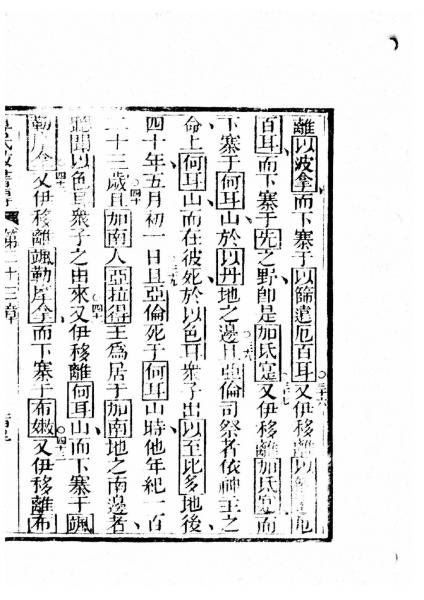 離以波拿而下寨于以篩遺厄百耳三十六又伊移離以篩遺厄
百耳而下寨于旡之野即是加氐寔三十七又伊移離加氐寔而
下寨于何耳山於以丹地之邊且三十八亞倫司祭者依神主之
命上何耳山而在彼死於以色耳衆子出以至比多地後
四十年五月初一日三十九且亞倫死于何耳山時他年紀一百
二十三歲四十且加南人亞拉得王爲居于加南地之南邊者
聽聞以色耳衆子之由來四十一又伊移離何耳山而下寨于颯
勒摩拿四十二又伊移離颯勒摩拿而下寨于布嫩四十三又伊移離布
第三十三章